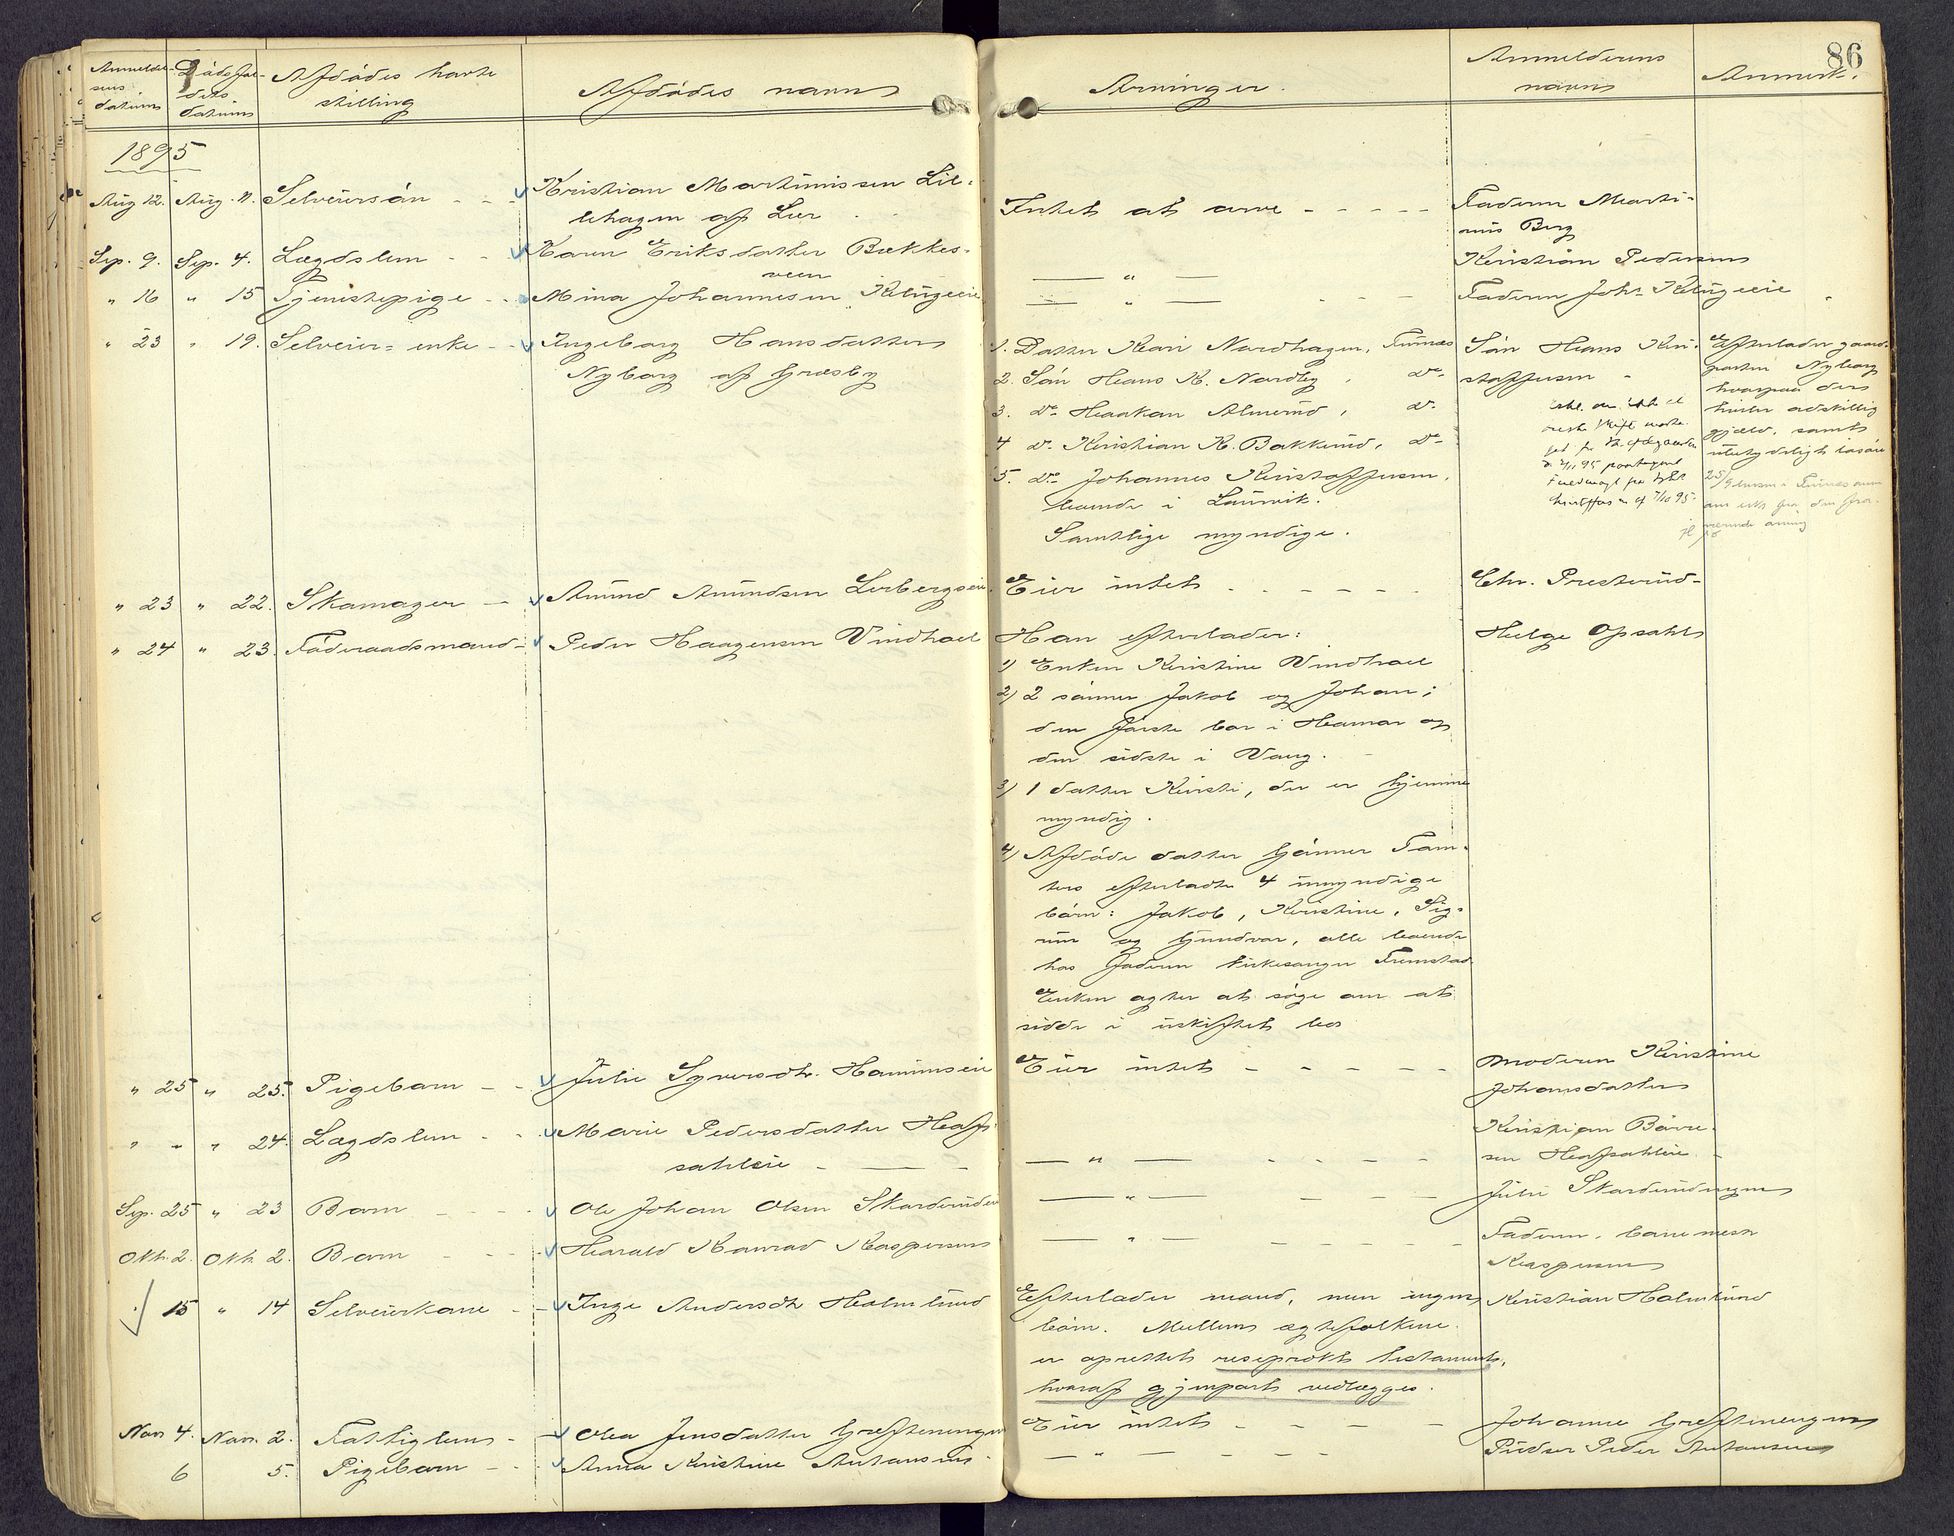 86
Anmeldel-
sens
datum
Dødsfal-
dets
datum
Afdødes havte
stilling
Afdødes navn
Arvinger.
Anmelderens
navn
Anmerk.
1895
Aug 12. Aug. 11. Selveiersøn - - Kristian Martinissen Lil-
lehagen af Lier
Intet at arve - - - - - Faderen Marti-
nus Berg
Sep. 9. Sep. 4. Lægdslem - - Karen Eriksdatter Bækkes-
veen
— " — Kristian Pedersen
" 16 " 15 Tjenestepige - - Mina Johannesen Klugeeie
— " — - - - Faderen Johs Klugeeie
" 23 " 19. Selveier-enke - - Ingeborg Hansdatter
Nyborg af Græsby
1. Datter Kari Nordhagen, Furnes
2. Søn Hans K. Nordby, do
3. do Haakon Almerud, do
4 do Kristian K. Bakkerud, do
5. do Johannes Kristoffersen,
boende i Laurvik.
Samtlige myndige.
Søn Hans Kri-
stoffersen
Efterlader gaard-
parten Nyborg
hvorpaa der
hviler adskillig
gjæld, samt
ubetydeligt løsøre
" 23 " 22. Skomager - - Amund Amundsen Lerbergseie
Eier intet - - - - - Chr. Presterud
" 24 " 23. Føderaadsmand - Peder Haagensen Vindhoel
Han efterlader: Helge Opsahl
1) Enken Kristine Vindhoel
2) 2 sønner Jakob og Johan;
den første bor i Hamar og
den sidste i Vang.
3) 1 datter Kristi, der er hjemme
myndig.
4) Afdøde datter Gønner Fam-
ters efterladte 4 umyndige
børn: Jakob, Kristine, Sig-
run og Gundvor, alle boende
hos faderen kirkesanger Fremstad
Enken agter at søge om at
sidde i uskiftet bo
" 25 " 25. Pigebarn - - Julie Syversdtr. Hommerseie
Eier intet - - - - - Moderen Kristine
Johansdatter
" - " 24. Lægdslem - - Marie Pedersdatter Hafs
sahleie - — -
— " — - - - - Kristian Børre-
sen Hafsahleie
Sep. 25 " 23 Barn - - - Ole Johan Olsen Skarderuden
— " — - - - Julie Skarderudengen
Okt. 2. Okt. 2. Barn - - - Harald Konrad Kaspersen
— " — - - - - Faderen, banemest
Kaspersen
15 " 14 Selveierkone - - Inge Andersdtr Holmlund
Efterlader mand, men ingen Kristian Holmlund
børn. Mellem ægtefolkene
er oprettet resiprokt testament,
hvoraf gjenpart vedlægges.
Nov 4. Nov. 2. Fattiglem - - Olea Jensdatter Greftenengen
Eier intet - - - - Johanne Greftenengen
6 5. Pigebarn - - Anna Kristine Antonsen
— " — - - - Peder Antonsen